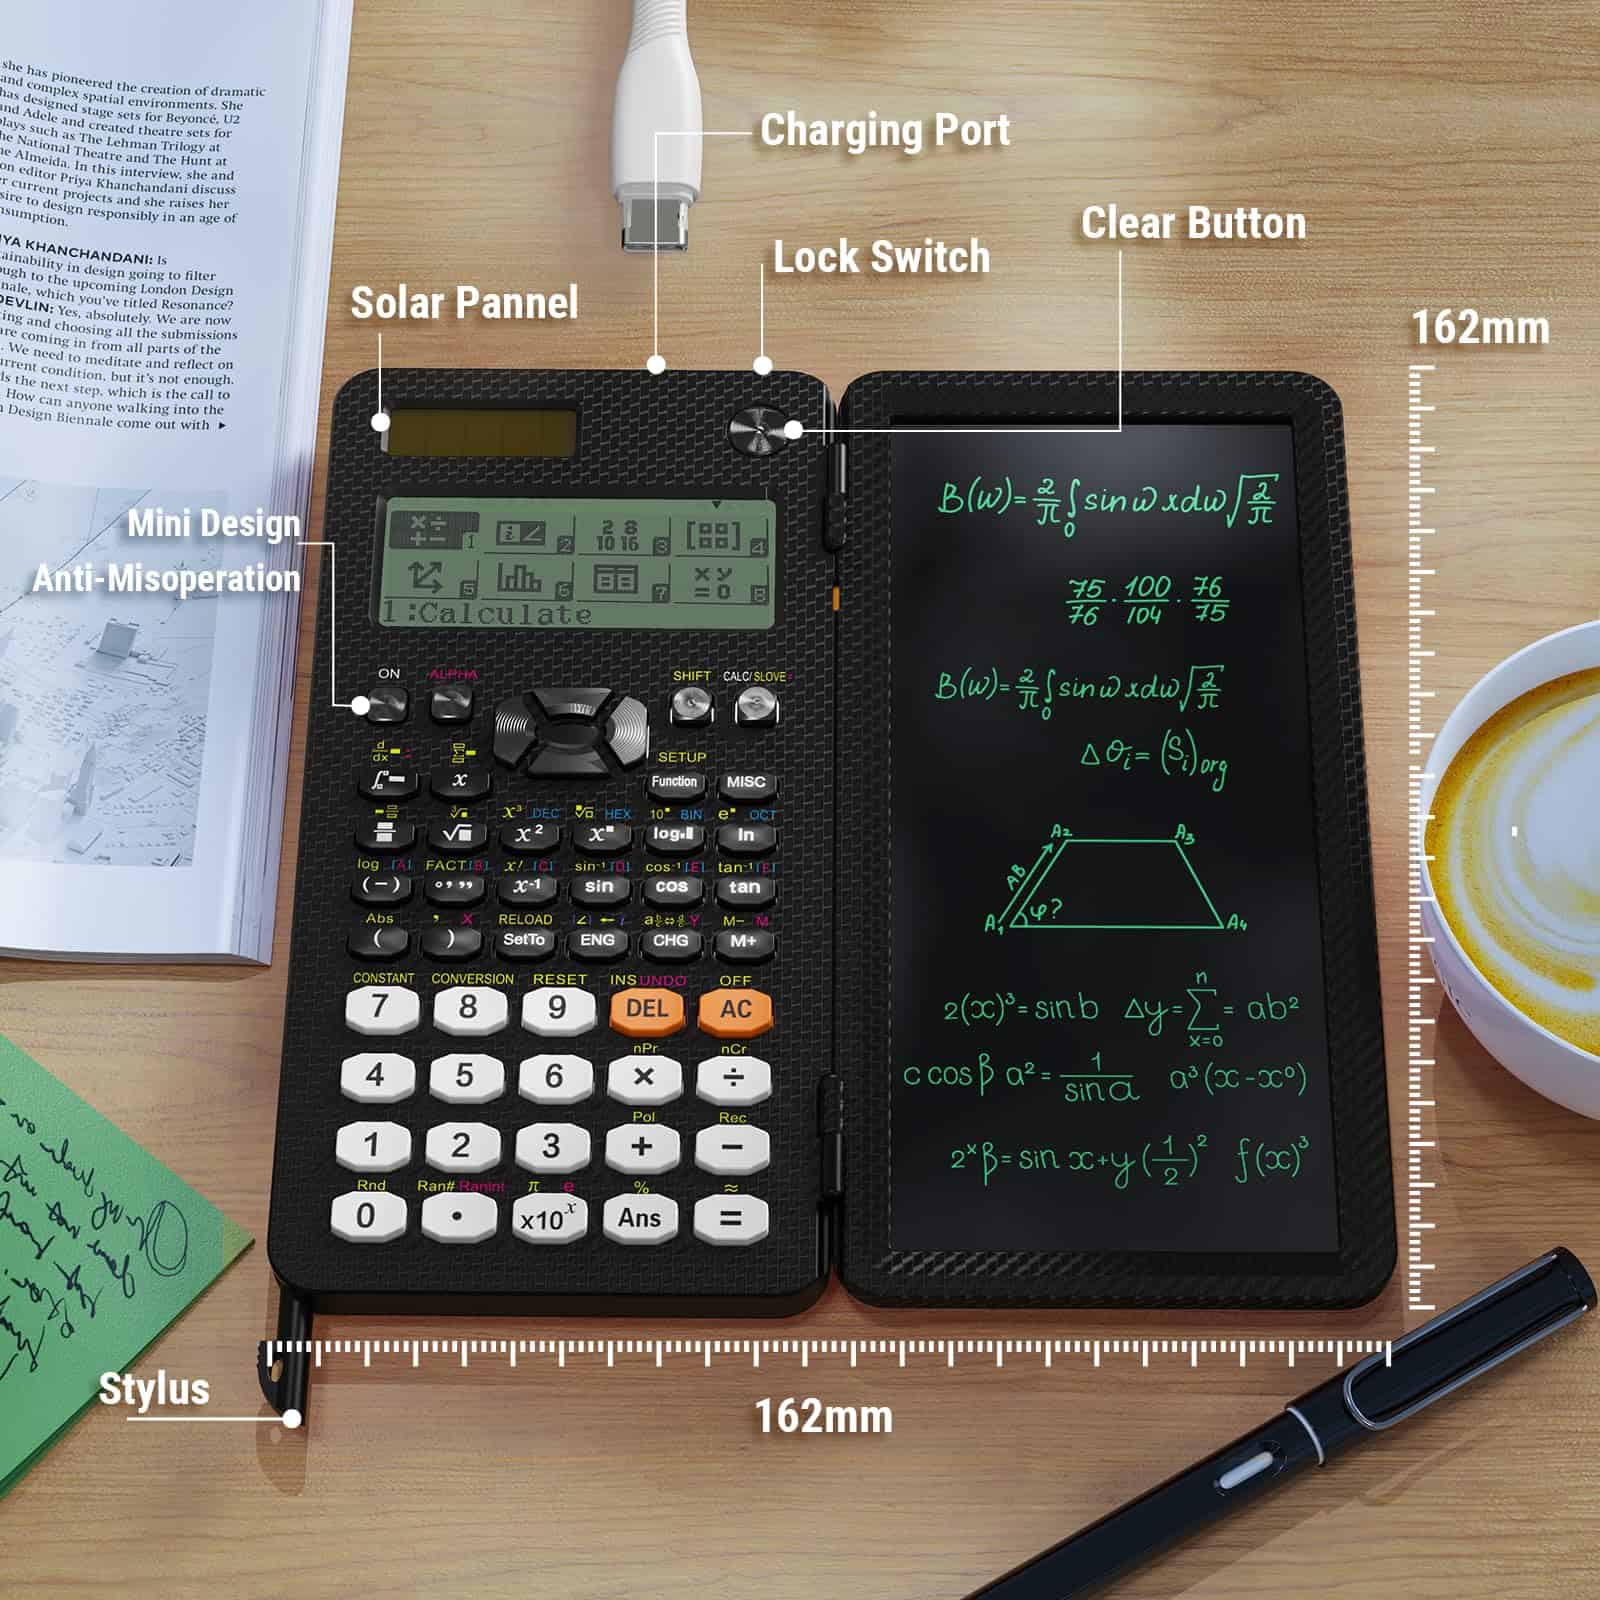 she has pioneered the creation of dramatic
and complex spatial environments. She
has designed stage sets for Beyoncé, U2
and Adele and created theatre sets for
plays such as The Lehman Trilogy at
he National Theatre and The Hunt at
he Almeida. In this interview, she and
on editor Priya Khanchandani discuss
r current projects and she raises her
sire to design responsibly in an age of
nsumption.
IYA KHANCHANDANI: Is
tainability in design going to filter
ough to the upcoming London Design
nale, which you've titled Resonance?
DEVLIN: Yes, absolutely. We are now
ting and choosing all the submissions
are coming in from all parts of the
. We need to meditate and reflect on
urrent condition, but it's not enough.
ds the next step, which is the call to
How can anyone walking into the
n Design Biennale come out with ▸
Charging Port
Clear Button
Lock Switch
Solar Pannel
162mm
Mini Design
Anti-Misoperation
1 2 8 10 16 2 3 4
5 6 7 x y = 0 8
1:Calculate
ON ALPHA SHIFT CALC/SLOVE=
d/dx SETUP
x Function MISC
x³ DEC HEX 10 BIN e OCT
√ x² x log ln
log [A] FACT [B] x! [C] sin⁻¹ [D] cos⁻¹ [E] tan⁻¹ [F]
(−) °,,, x⁻¹ sin cos tan
Abs , X RELOAD ∠ ← i Y M− M
( ) SetTo ENG CHG M+
CONSTANT CONVERSION RESET INS UNDO OFF
7 8 9 DEL AC
nPr nCr
4 5 6 × ÷
Pol Rec
1 2 3 + −
Rnd Ran# Ranint π e % ≈
0 • x10ˣ Ans =
B(w)=2/π ∫₀ sin w x dw √(2/π)
75/76 · 100/104 · 76/75
B(w)=2/π ∫₀ sin w x dw √(2/π)
Δσᵢ=(Sᵢ)org
A₂ A₃
AB
A₁ φ? A₄
2(x)³=sin b Δy=∑ n x=0 = ab²
c cos β a²=1/sin a a³(x-x⁰)
2ˣβ=sin x+y(1/2)² f(x)³
Stylus
162mm